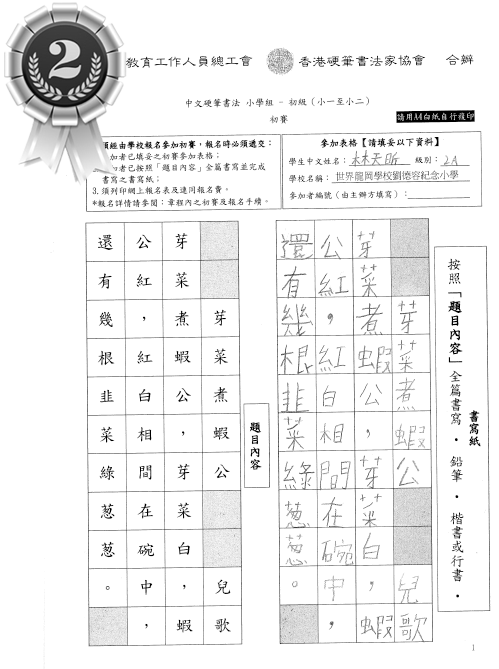 2
教育工作人員總工會 香港硬筆書法家協會 合辦
中文硬筆書法 小學組 - 初級（小一至小二）
初賽
請用A4白紙自行複印
須經由學校報名參加初賽，報名時必須遞交：
加者已填妥之初賽參加表格；
加者已按照「題目內容」全篇書寫並完成
書寫之書寫紙；
3. 須列印網上報名表及連同報名費。
*報名詳情請參閱：章程內之初賽及報名手續。
參加表格【請填妥以下資料】
學生中文姓名：林天昕 級別：2A
學校名稱：世界龍岡學校劉德容紀念小學
參加者編號（由主辦方填寫）：
書寫紙
按照「題目內容」全篇書寫．鉛筆．楷書或行書．
芽菜煮蝦公
兒歌
芽菜煮蝦公，芽菜白，蝦
公紅，紅白相間在碗中，
還有幾根韭菜綠葱葱。
題目內容
芽菜煮蝦公
兒歌
芽菜煮蝦公，芽菜白，蝦
公紅，紅白相間在碗中，
還有幾根韭菜綠葱葱。
1